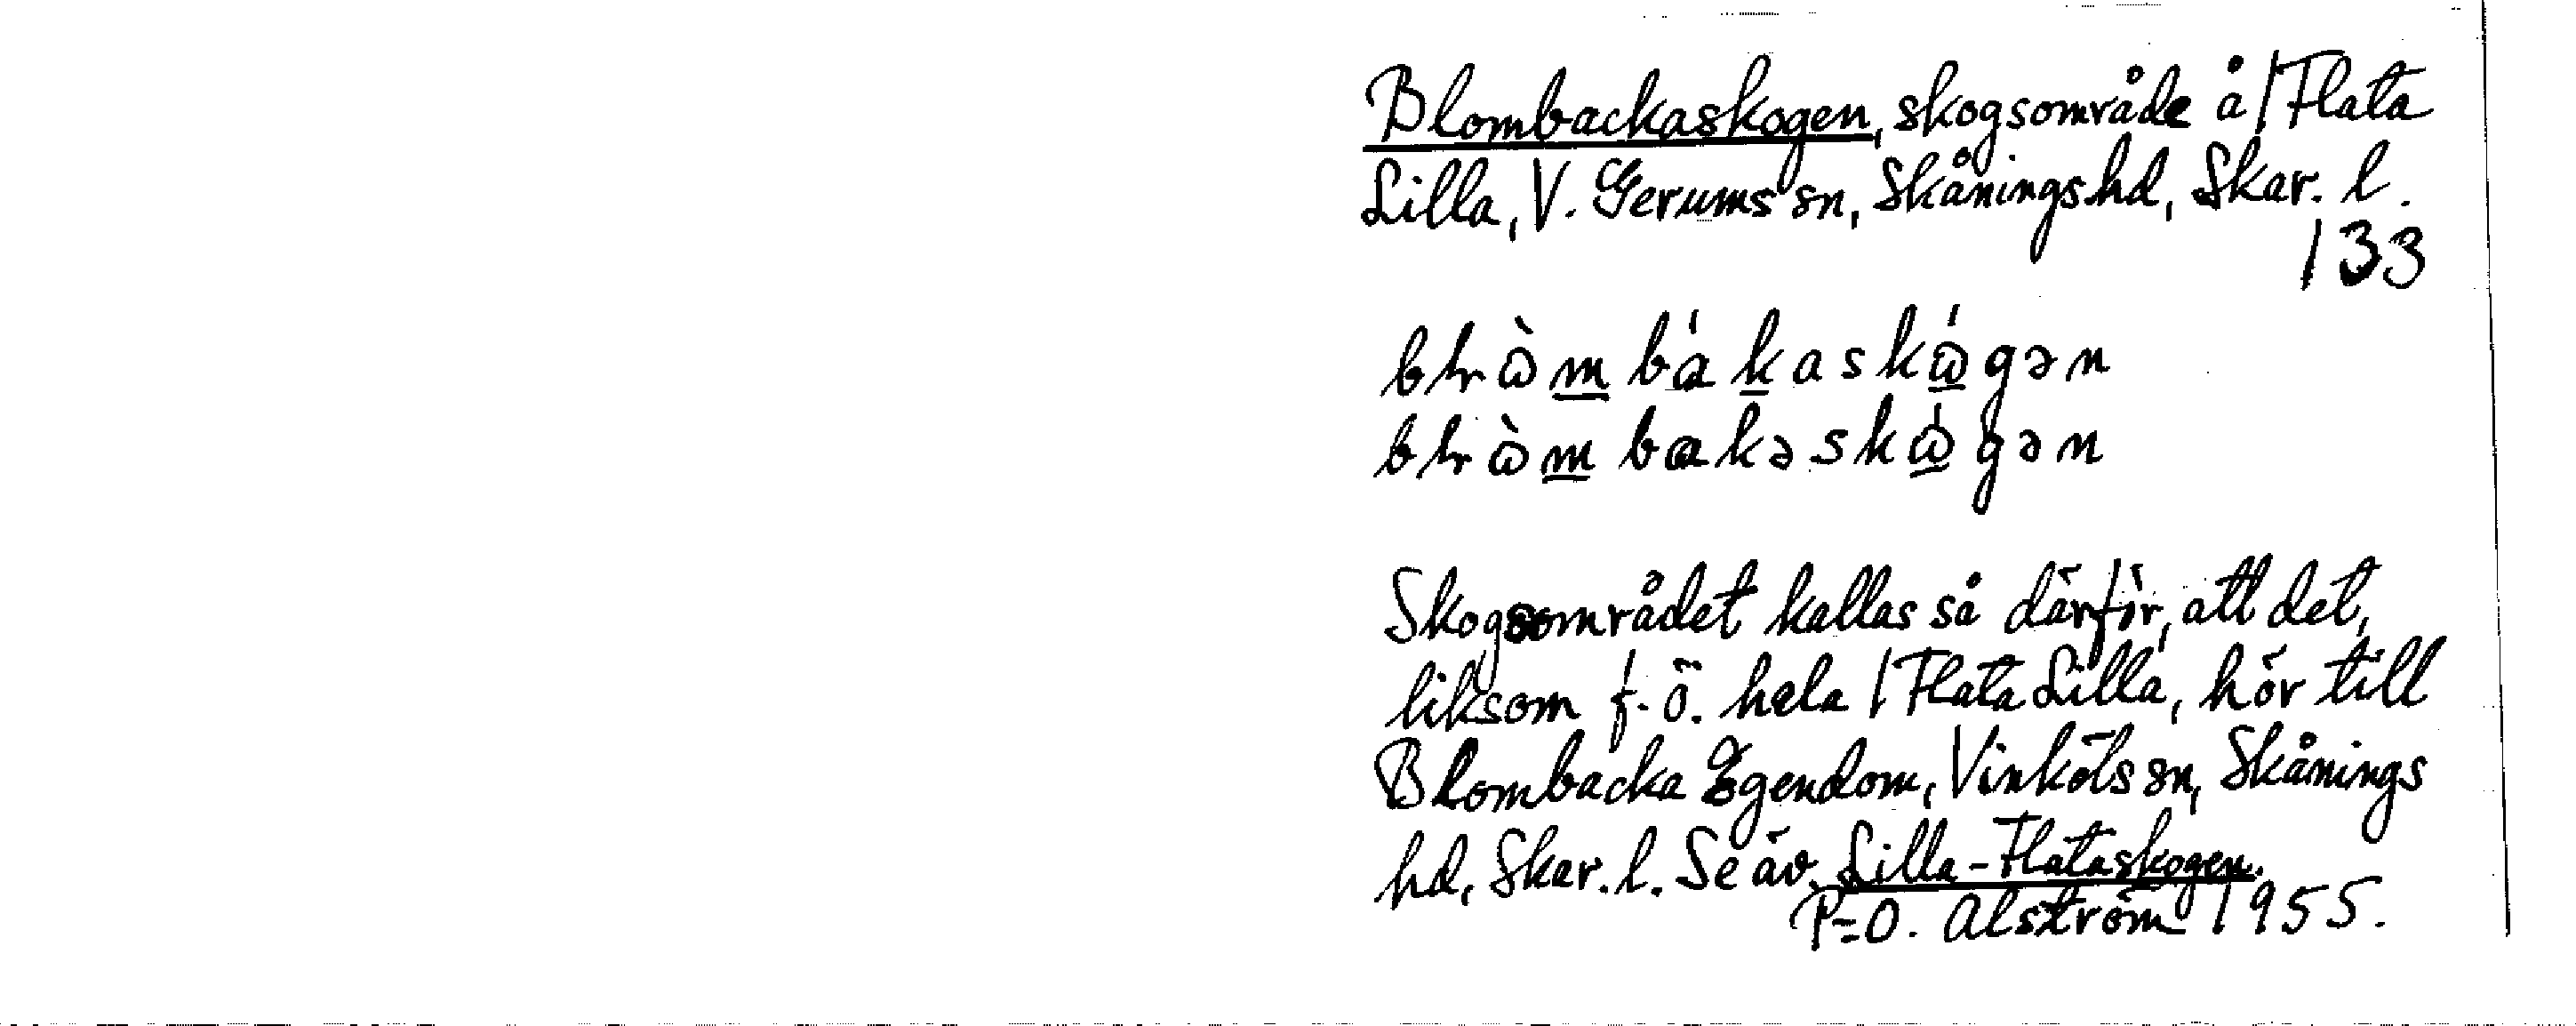 Blombackaskogen, skogsområde å 1 Flata
Lilla, V. Gerums sn, Skånings hd, Skar. l.
133
Skogsområdet kallas så därför, att det,
liksom f. ö. hela 1 Flata Lilla, hör till
Blombacka Egendom, Vinköls sn, Skånings
hd, Skar. l. Se äv. Lilla-Flataskogen.
P-O. Alström 1955.